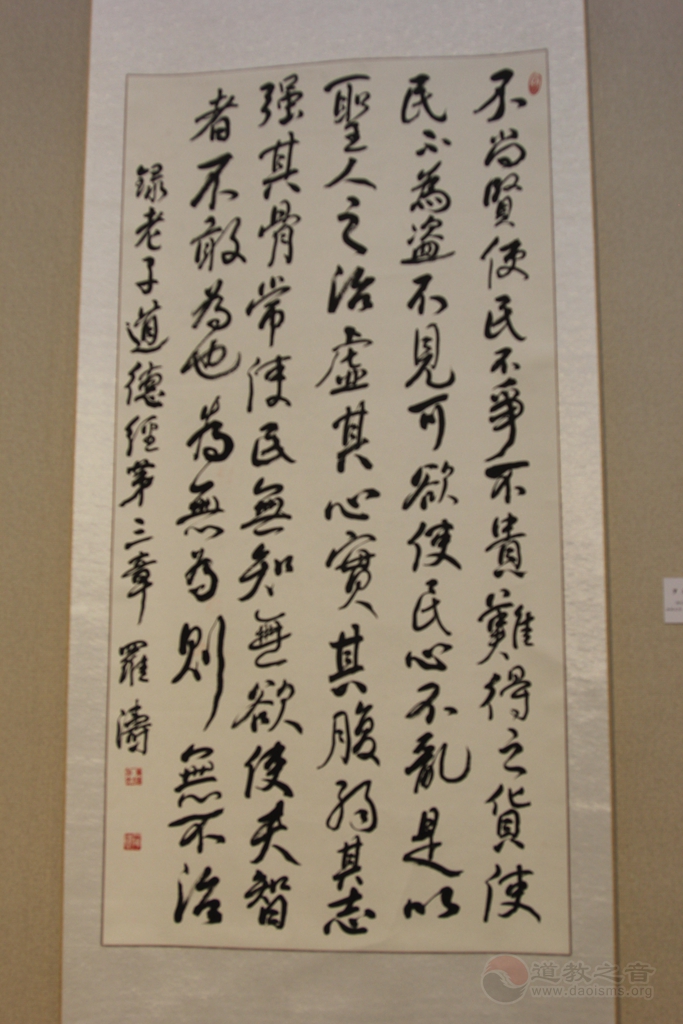 不尚賢使民不爭不貴難得之貨使
民不為盗不見可欲使民心不亂是以
聖人之治虛其心實其腹弱其志
强其骨常使民無知無欲使夫智
者不敢為也為無為則無不治
錄老子道德經第三章 羅濤
道教之音
www.daoisms.org